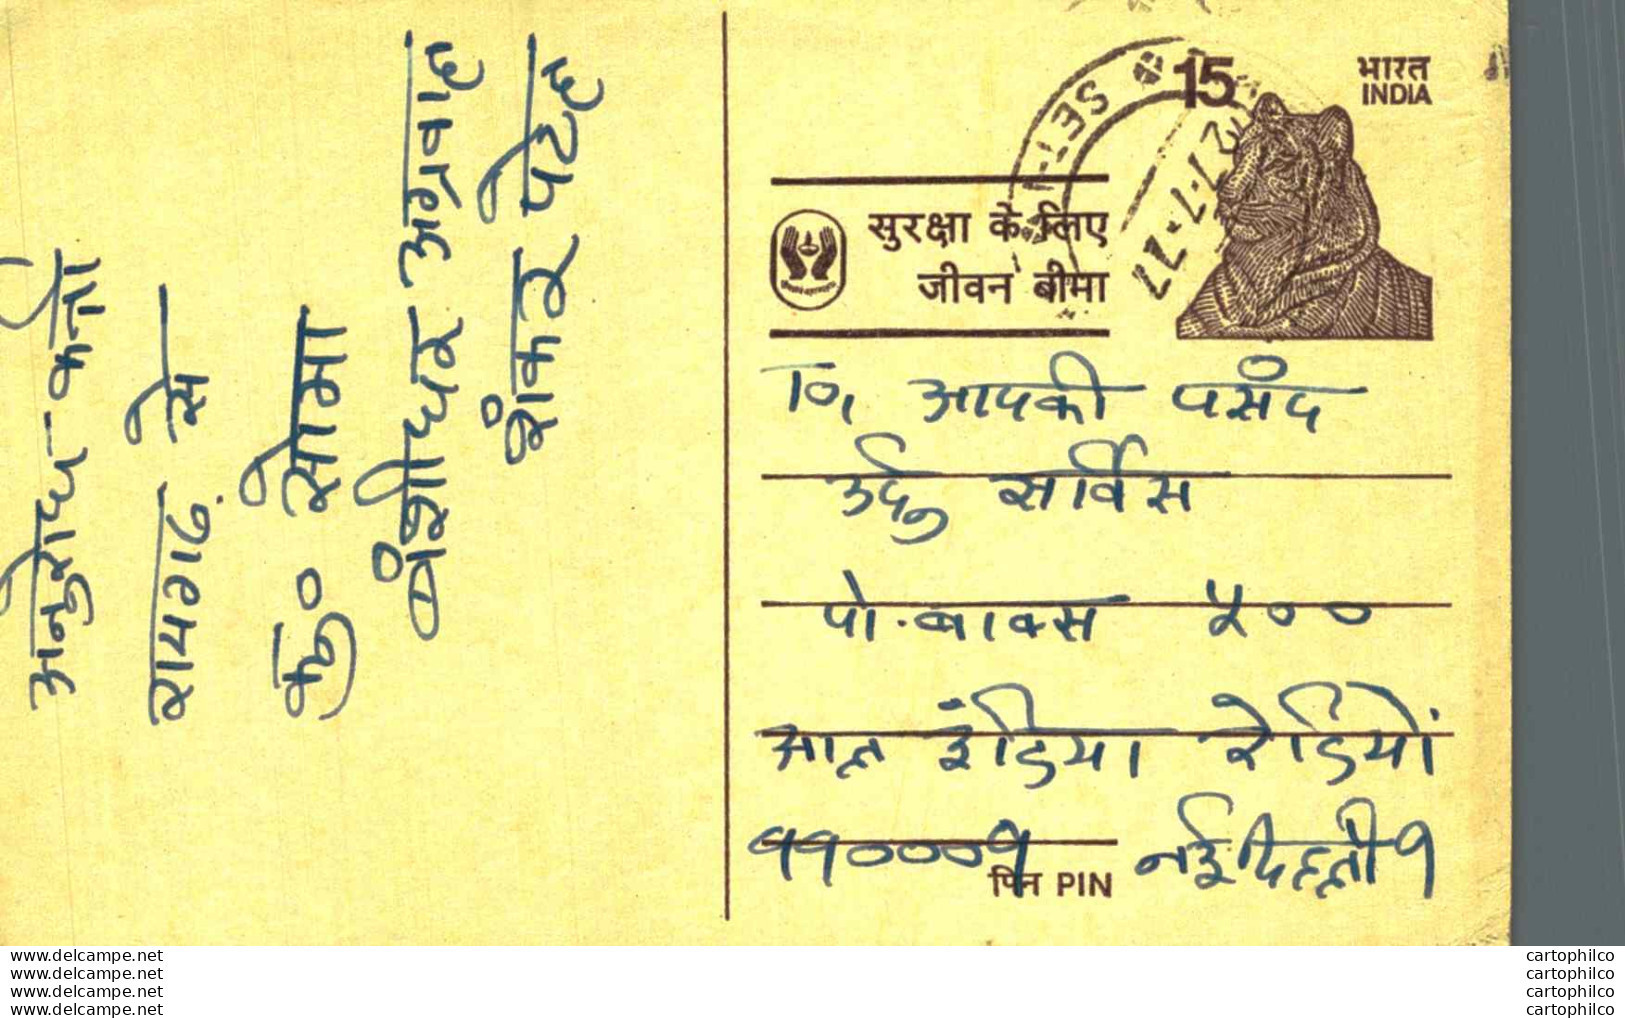 15
भारत
INDIA
SET-1
27-7-77
सुरक्षा के लिए
जीवन बीमा
आपकी पसंद
उर्दु सर्विस
पो. बाक्स ५००
आल इंडिया रेडियों
११०००१ नई दिल्ली १
पिन PIN
शंकर पटेल
बंशीधर अग्रवाल
कु० सोमा
रायगढ़ से
अनुरोध-कर्ता
www.delcampe.net
www.delcampe.net
www.delcampe.net
www.delcampe.net
cartophilco
cartophilco
cartophilco
cartophilco